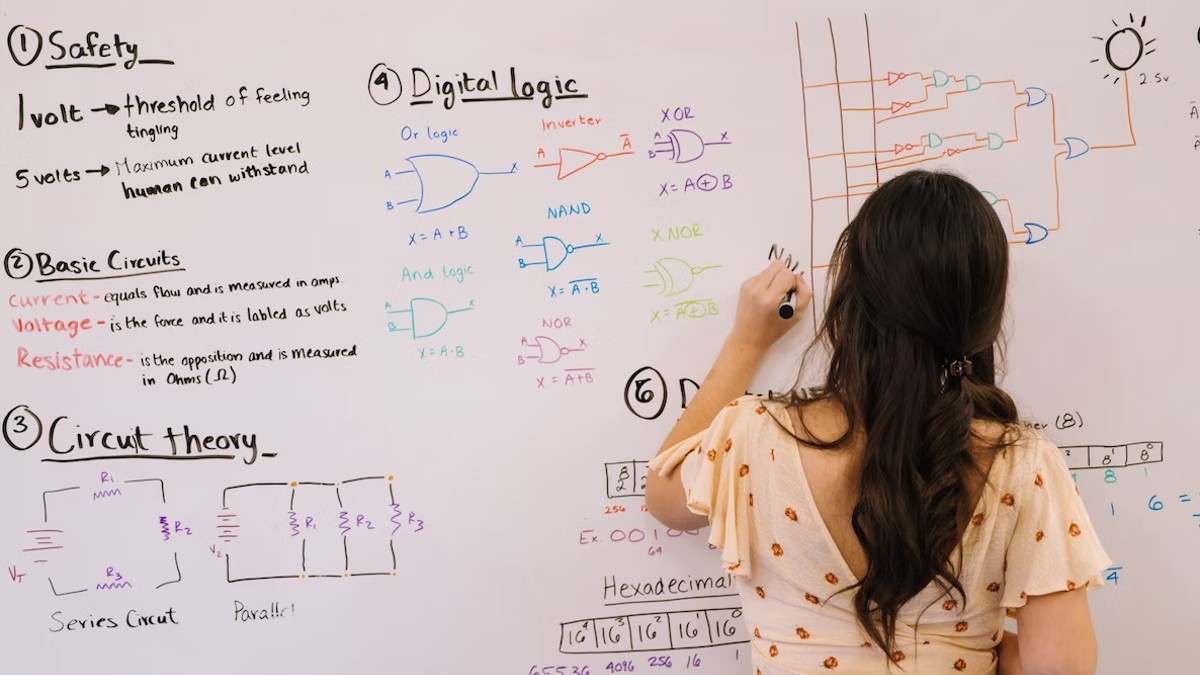 ① Safety
1 volt → threshold of feeling
tingling
5 volts → Maximum current level
human can withstand
② Basic Circuits
Current - equals flow and is measured in amps.
Voltage - is the force and it is labled as volts
Resistance - is the opposition and is measured
in Ohms (Ω)
③ Circuit theory
R1
R2
R3
VT
Series Circut
V2
R1
R2
R3
Parallel
④ Digital logic
Or logic
A
B
X
X = A + B
And logic
A
B
X
X = A·B
Inverter
A
A̅
NAND
A
B
X
X = A̅·̅B̅
NOR
A
B
X
X = A̅+̅B̅
XOR
A
B
X
X = A⊕B
X NOR
X = A̅⊕̅B̅
2.5v
⑤
(8)
8¹ 8⁰
8 1
1 6 =
4
256
Ex. 001
64
Hexadecimal
16⁴ 16³ 16² 16¹ 16⁰
65536 4096 256 16 1